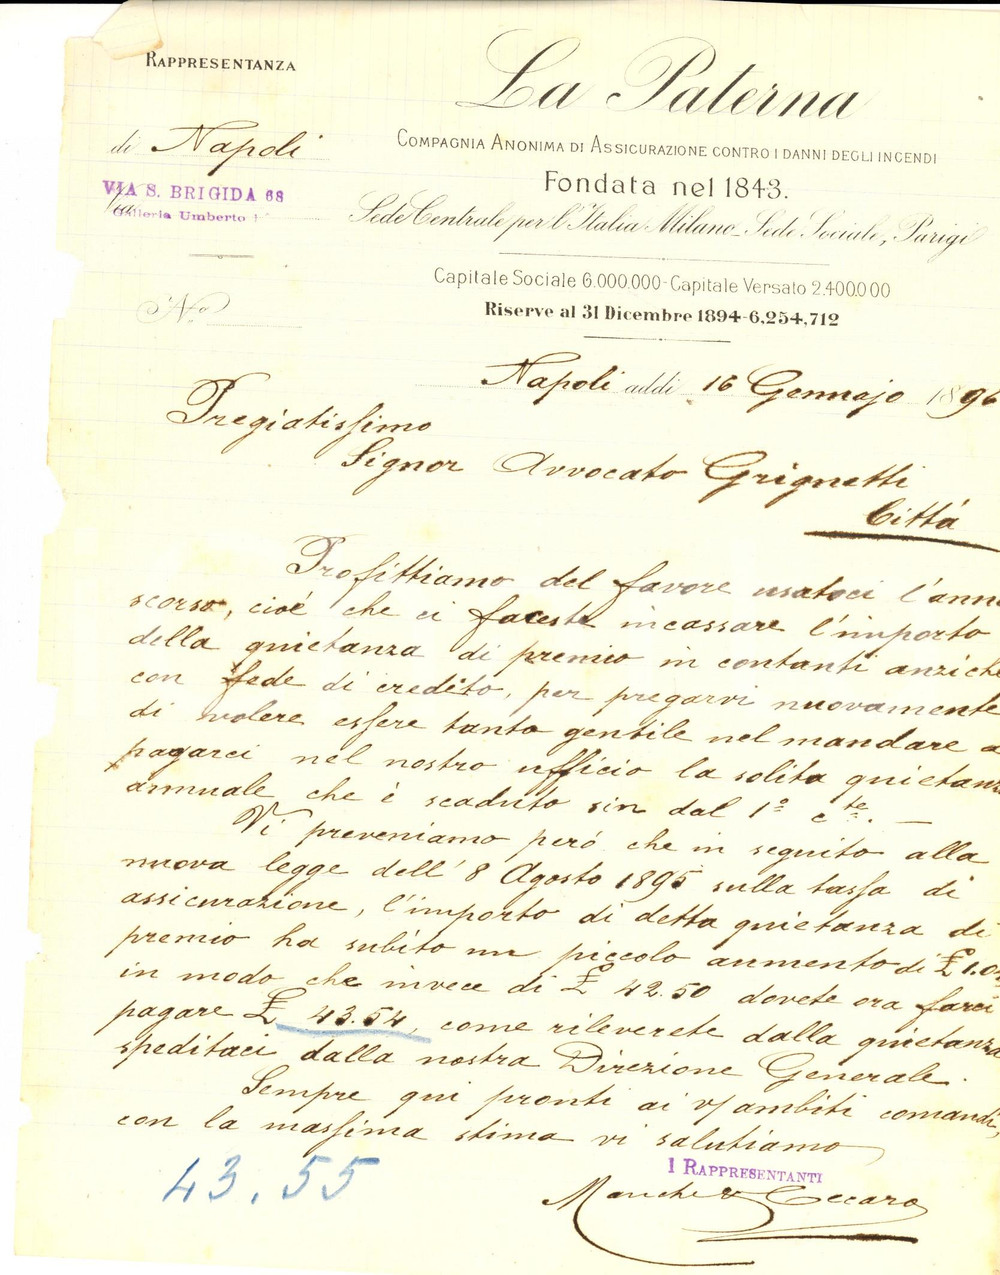 RAPPRESENTANZA
di Napoli
VIA S. BRIGIDA 68
Galleria Umberto I°
No
La Paterna
COMPAGNIA ANONIMA DI ASSICURAZIONE CONTRO I DANNI DEGLI INCENDI
Fondata nel 1843.
Sede Centrale per l'Italia Milano - Sede Sociale, Parigi
Capitale Sociale 6.000.000 - Capitale Versato 2.400.000
Riserve al 31 Dicembre 1894 - 6,254,712
Napoli addì 16 Gennajo 1896
Pregiatissimo
Signor Avvocato Grignetti
Città
Profittiamo del favore usatoci l'anno
scorso, cioè che ci faceste incassare l'importo
della quietanza di premio in contanti anziche
con fede di credito, per pregarvi nuovamente
di volere essere tanto gentile nel mandare a
pagarci nel nostro ufficio la solita quietanza
annuale che è scaduto sin dal 1º cte. —
Vi preveniamo peró che in seguito alla
nuova legge dell' 8 Agosto 1895 sulla tassa di
assicurazione, l'importo di detta quietanza di
premio ha subito un piccolo aumento di £ 1.04
in modo che invece di £ 42.50 dovete ora farci
pagare £ 43.54, come rileverete dalla quietanza
speditaci dalla nostra Direzione Generale.
Sempre qui pronti ai v/ ambiti comandi,
con la massima stima vi salutiamo
I RAPPRESENTANTI
43.55